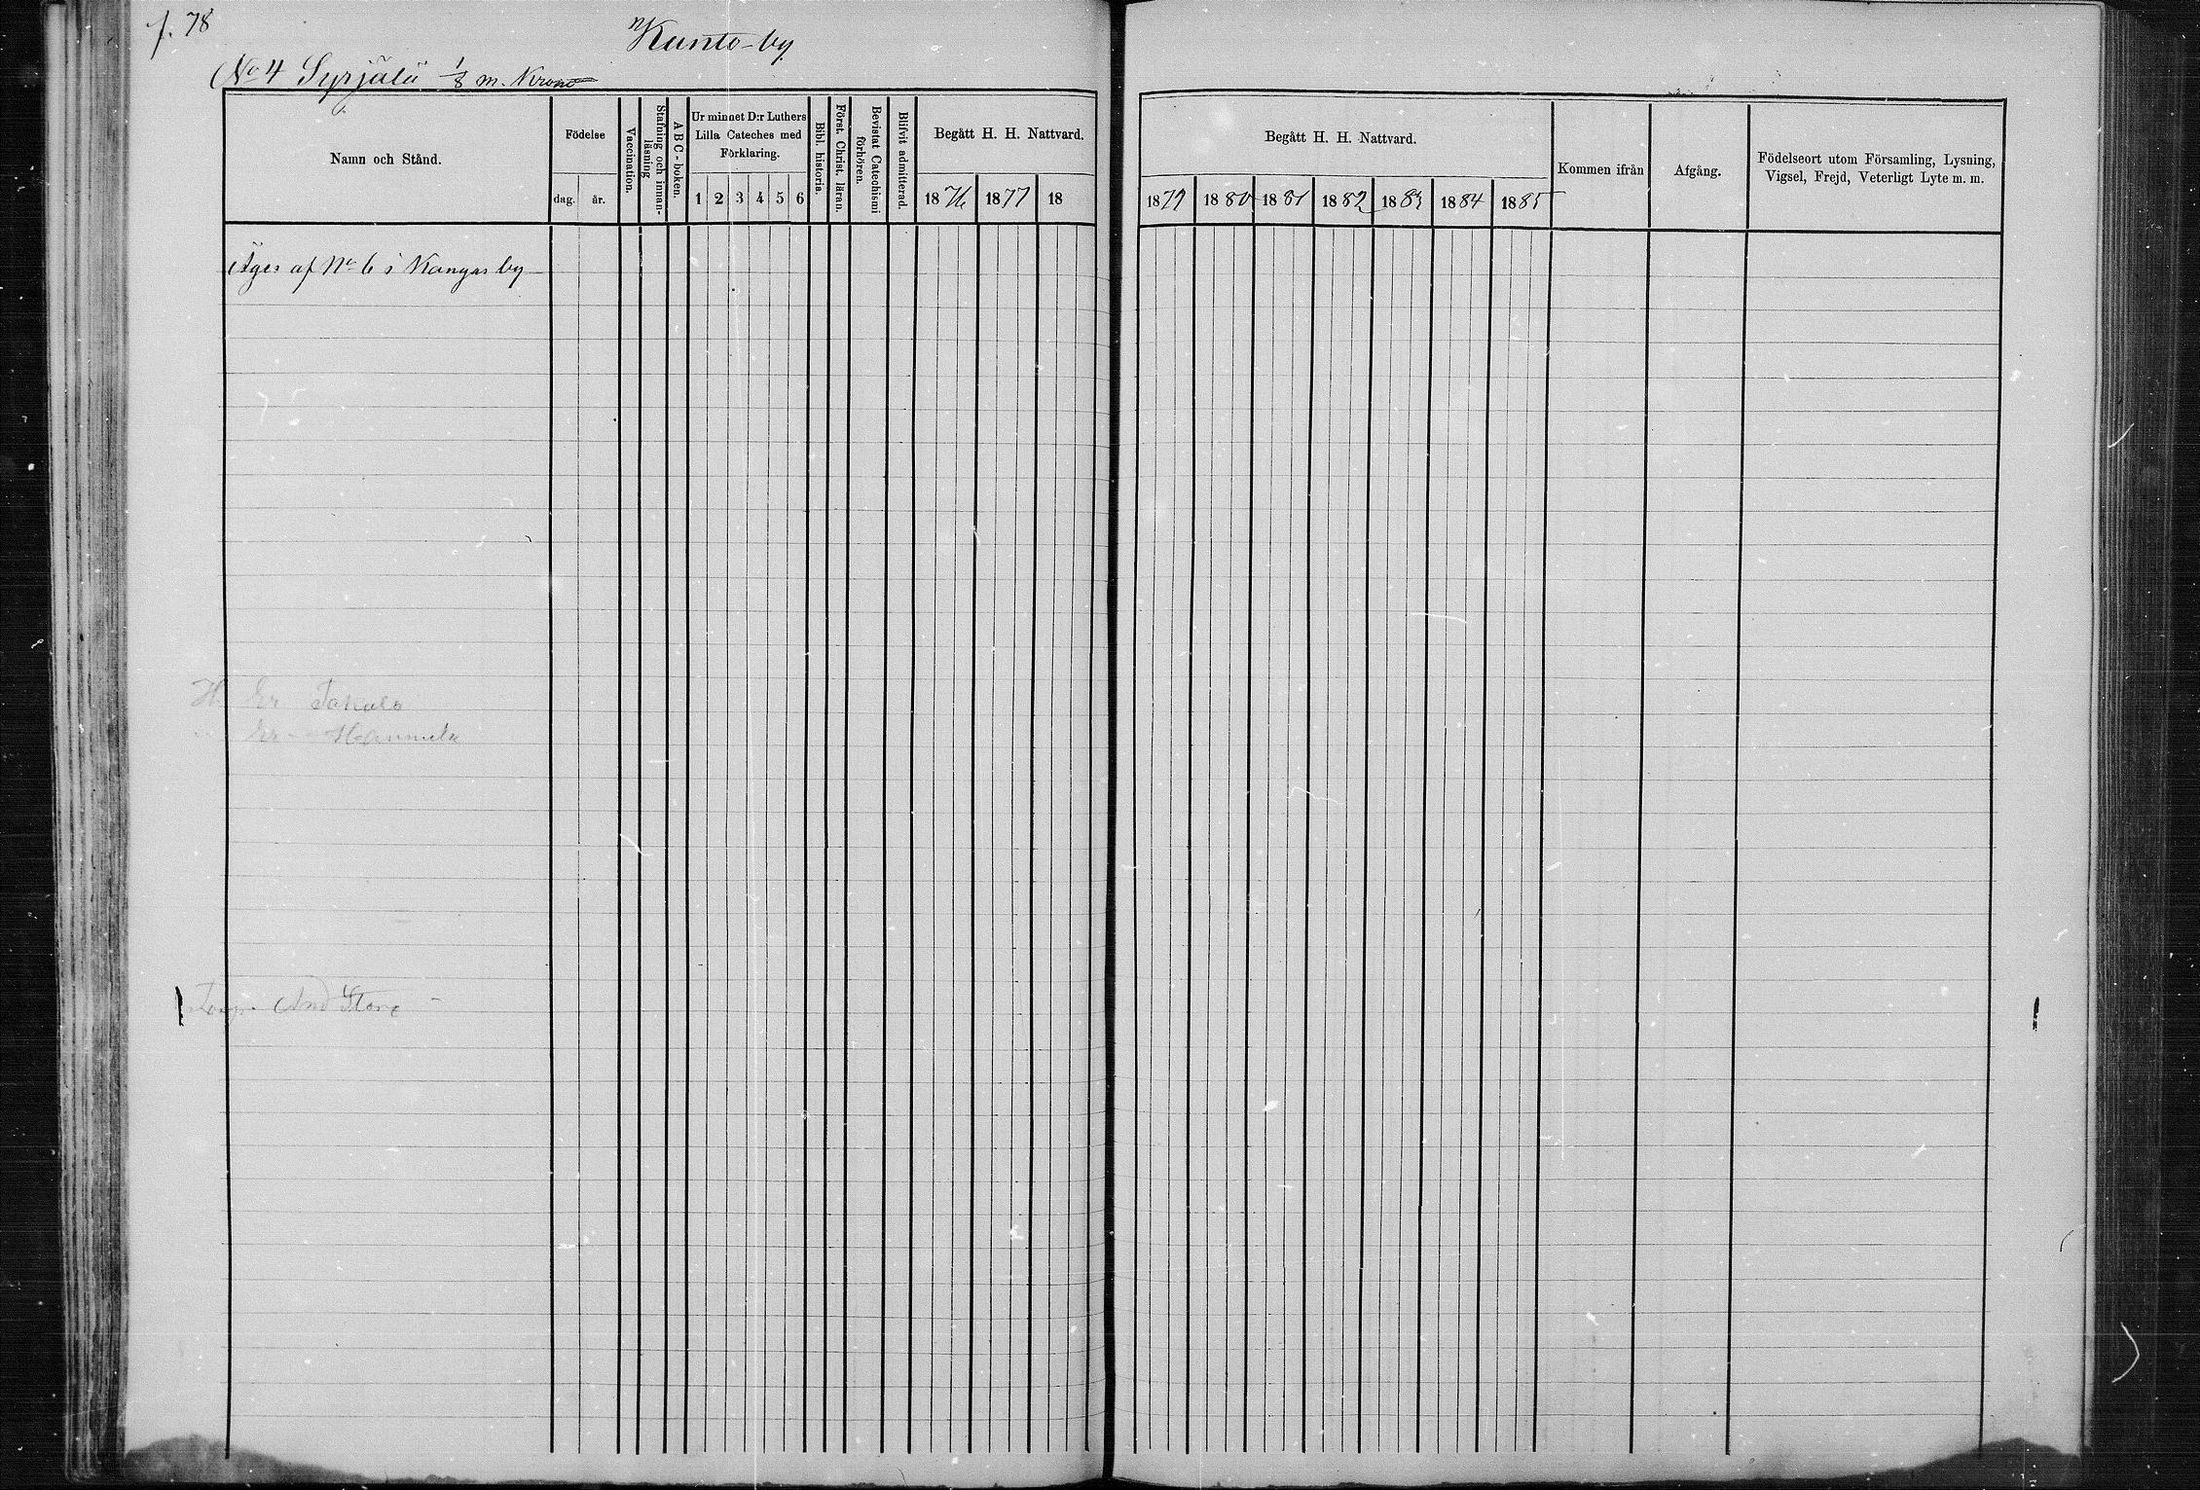 p. 78
Kunto-by.
No 4 Syrjälä 1/8 m. Krono
Namn och Stånd.
Födelse
dag. år.
Vaccination.
Stafning och innan-
läsning
ABC-boken.
Ur minnet D:r Luthers
Lilla Cateches med
Förklaring.
1 2 3 4 5 6
Bibl. historia.
Först. Christ. läran.
Bevistat Catechismi
förhören.
Blifvit admitterad.
Begått H. H. Nattvard.
1876 1877 18
Begått H. H. Nattvard.
1879 1880 1881 1882 1883 1884 1885
Kommen ifrån
Afgång.
Födelseort utom Församling, Lysning,
Vigsel, Frejd, Veterligt Lyte m. m.
Äges af No 6 i Kangas by
H. Er Takalo
Er Hannula
And